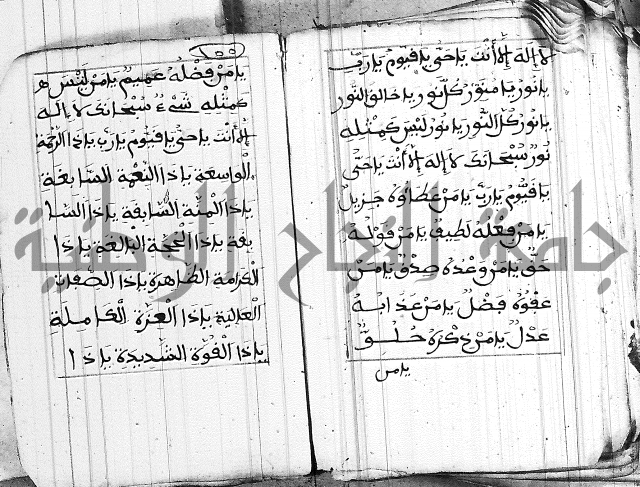 لا إله إلا أنت يا حي يا قيوم يا رب
يا نور يا منور كل نور يا خالق النور
يا نور كل النور يا نور ليس كمثله
نور سبحانك لا إله إلا أنت يا حي
يا قيوم يا رب يا من عطاؤه جزيل
يا من فعله لطيف يا من قوله
حق يا من وعده صدق يا من
عفوه فضل يا من عذابه
عدل يا من ذكره حلو
يا من
يا من فضله عميم يا من ليس
كمثله شيء سبحانك لا إله
إلا أنت يا حي يا قيوم يا رب يا ذا الرحمة
الواسعة يا ذا النعمة السابغة
يا ذا المنة السابقة يا ذا
يا ذا الحجة البالغة يا ذا
الكرامة الظاهرة يا ذا الصفات
العالية يا ذا العزة الكاملة
يا ذا القوة الشديدة يا ذا
جامعة النجاح الوطنية